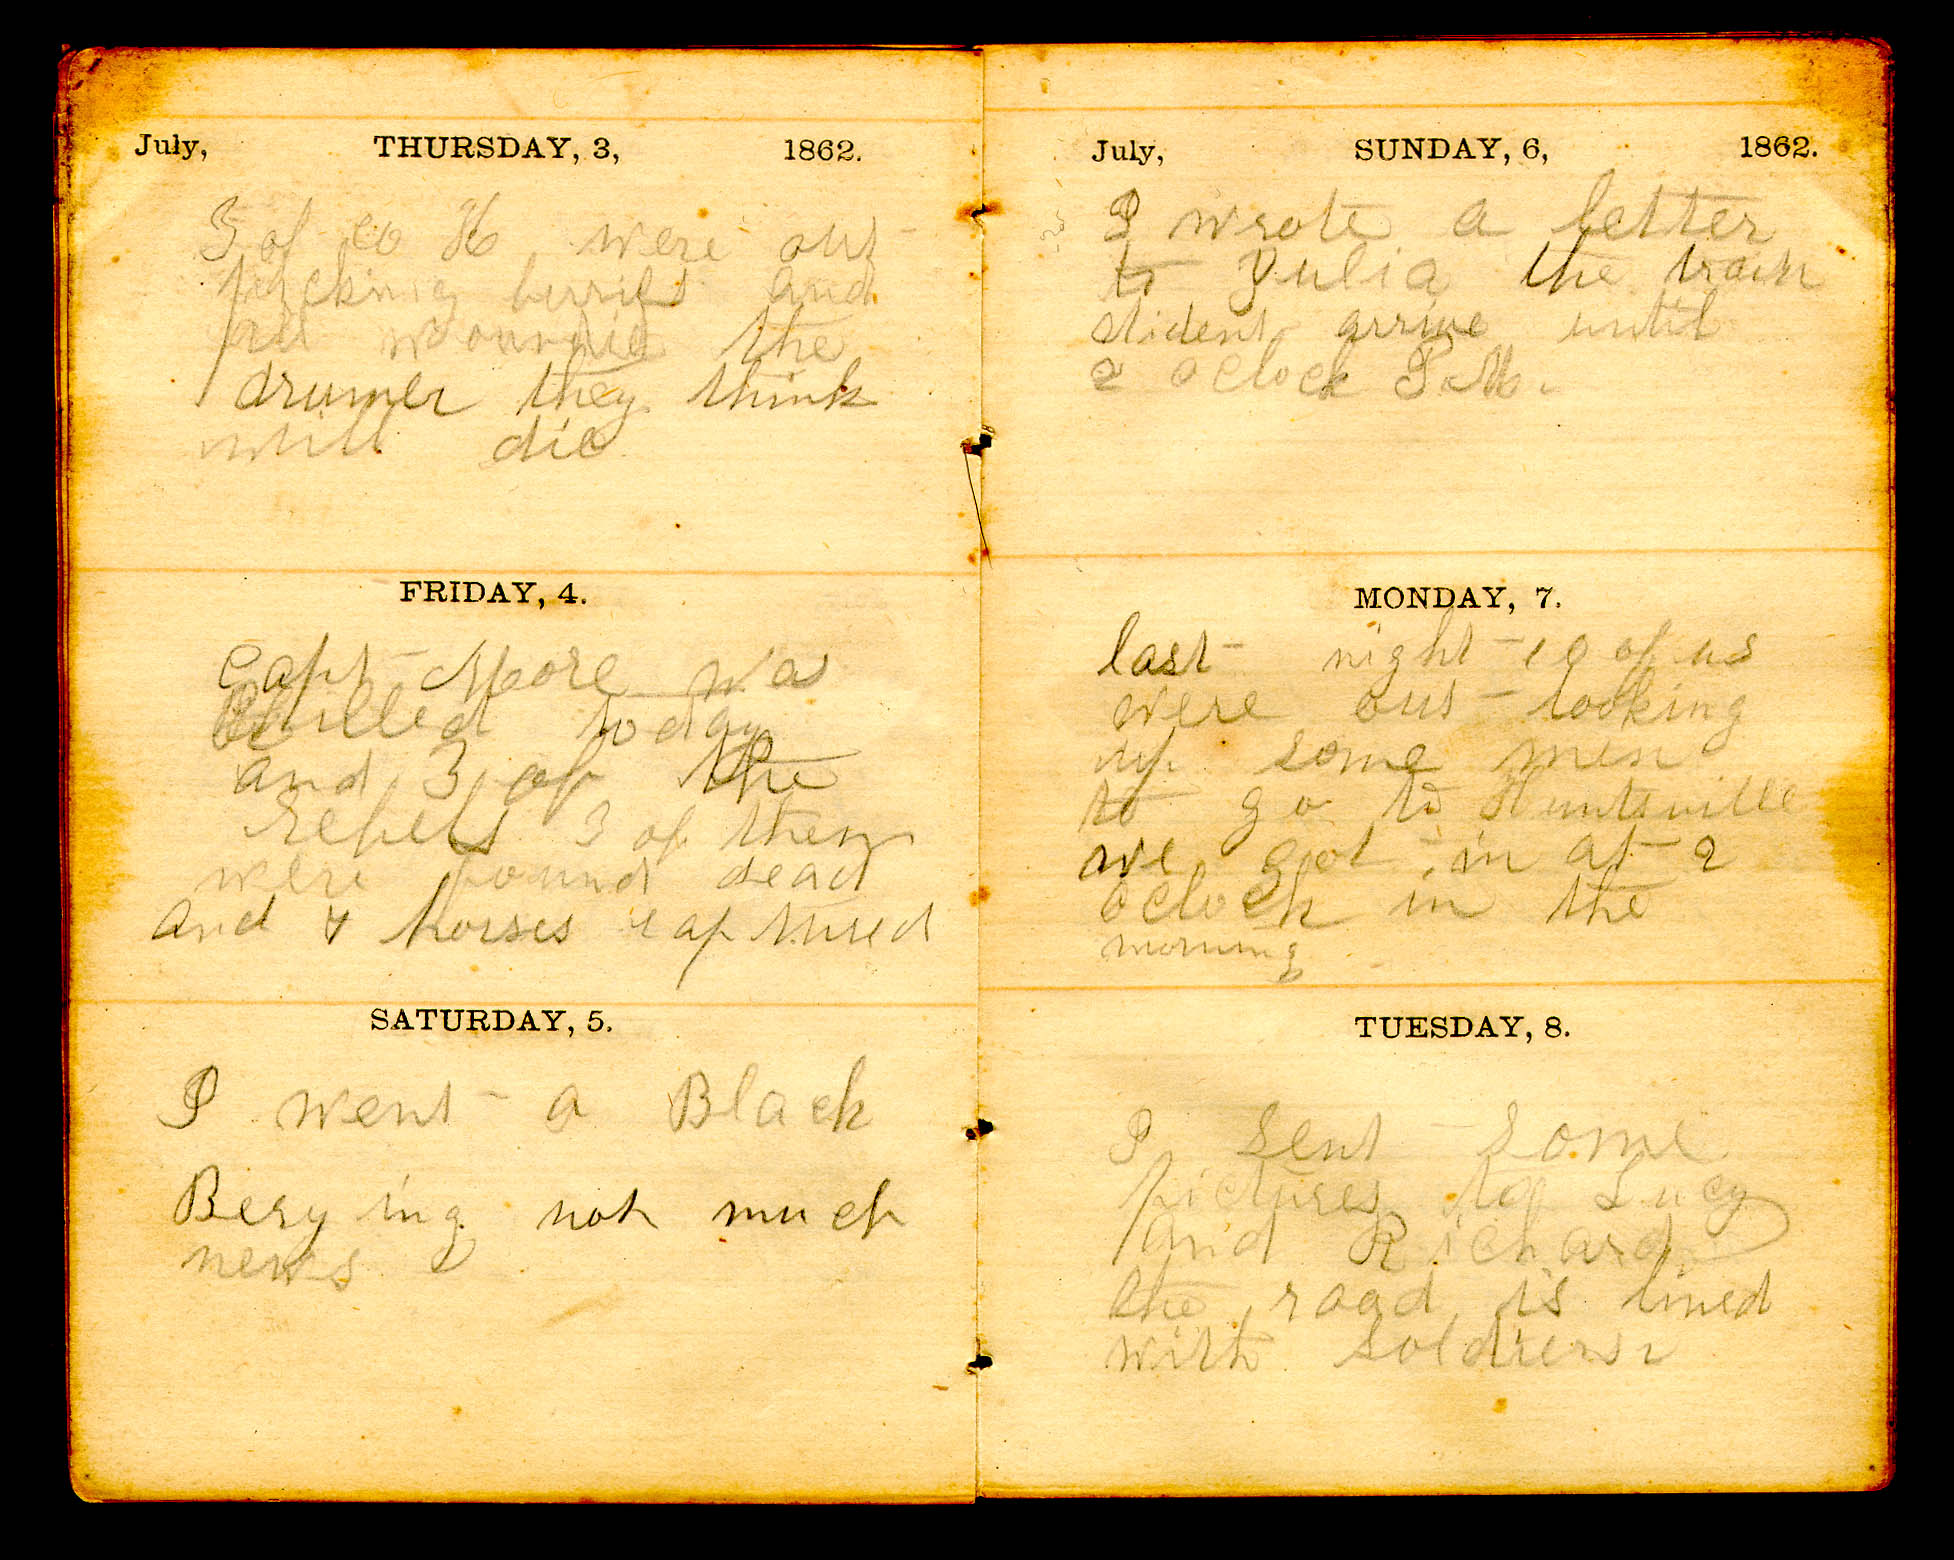 July, THURSDAY, 3, 1862.
5 of co H were out
picking berries and
all wounded the
drumer they think
will die
FRIDAY, 4.
Capt Moore was
killed today
and 3 of the
repels 3 of them
were found dead
and 4 horses captured
SATURDAY, 5.
I went a Black
Berying not much
news
July, SUNDAY, 6, 1862.
I wrote a letter
to Julia the train
dident arrive until
2 oclock P.M.
MONDAY, 7.
last night 10 of us
were out looking
up some men
to go to Huntsville
we got in at 2
oclock in the
morning
TUESDAY, 8.
I sent some
pictures to Lucy
and Richard
the road is lined
with soldiers